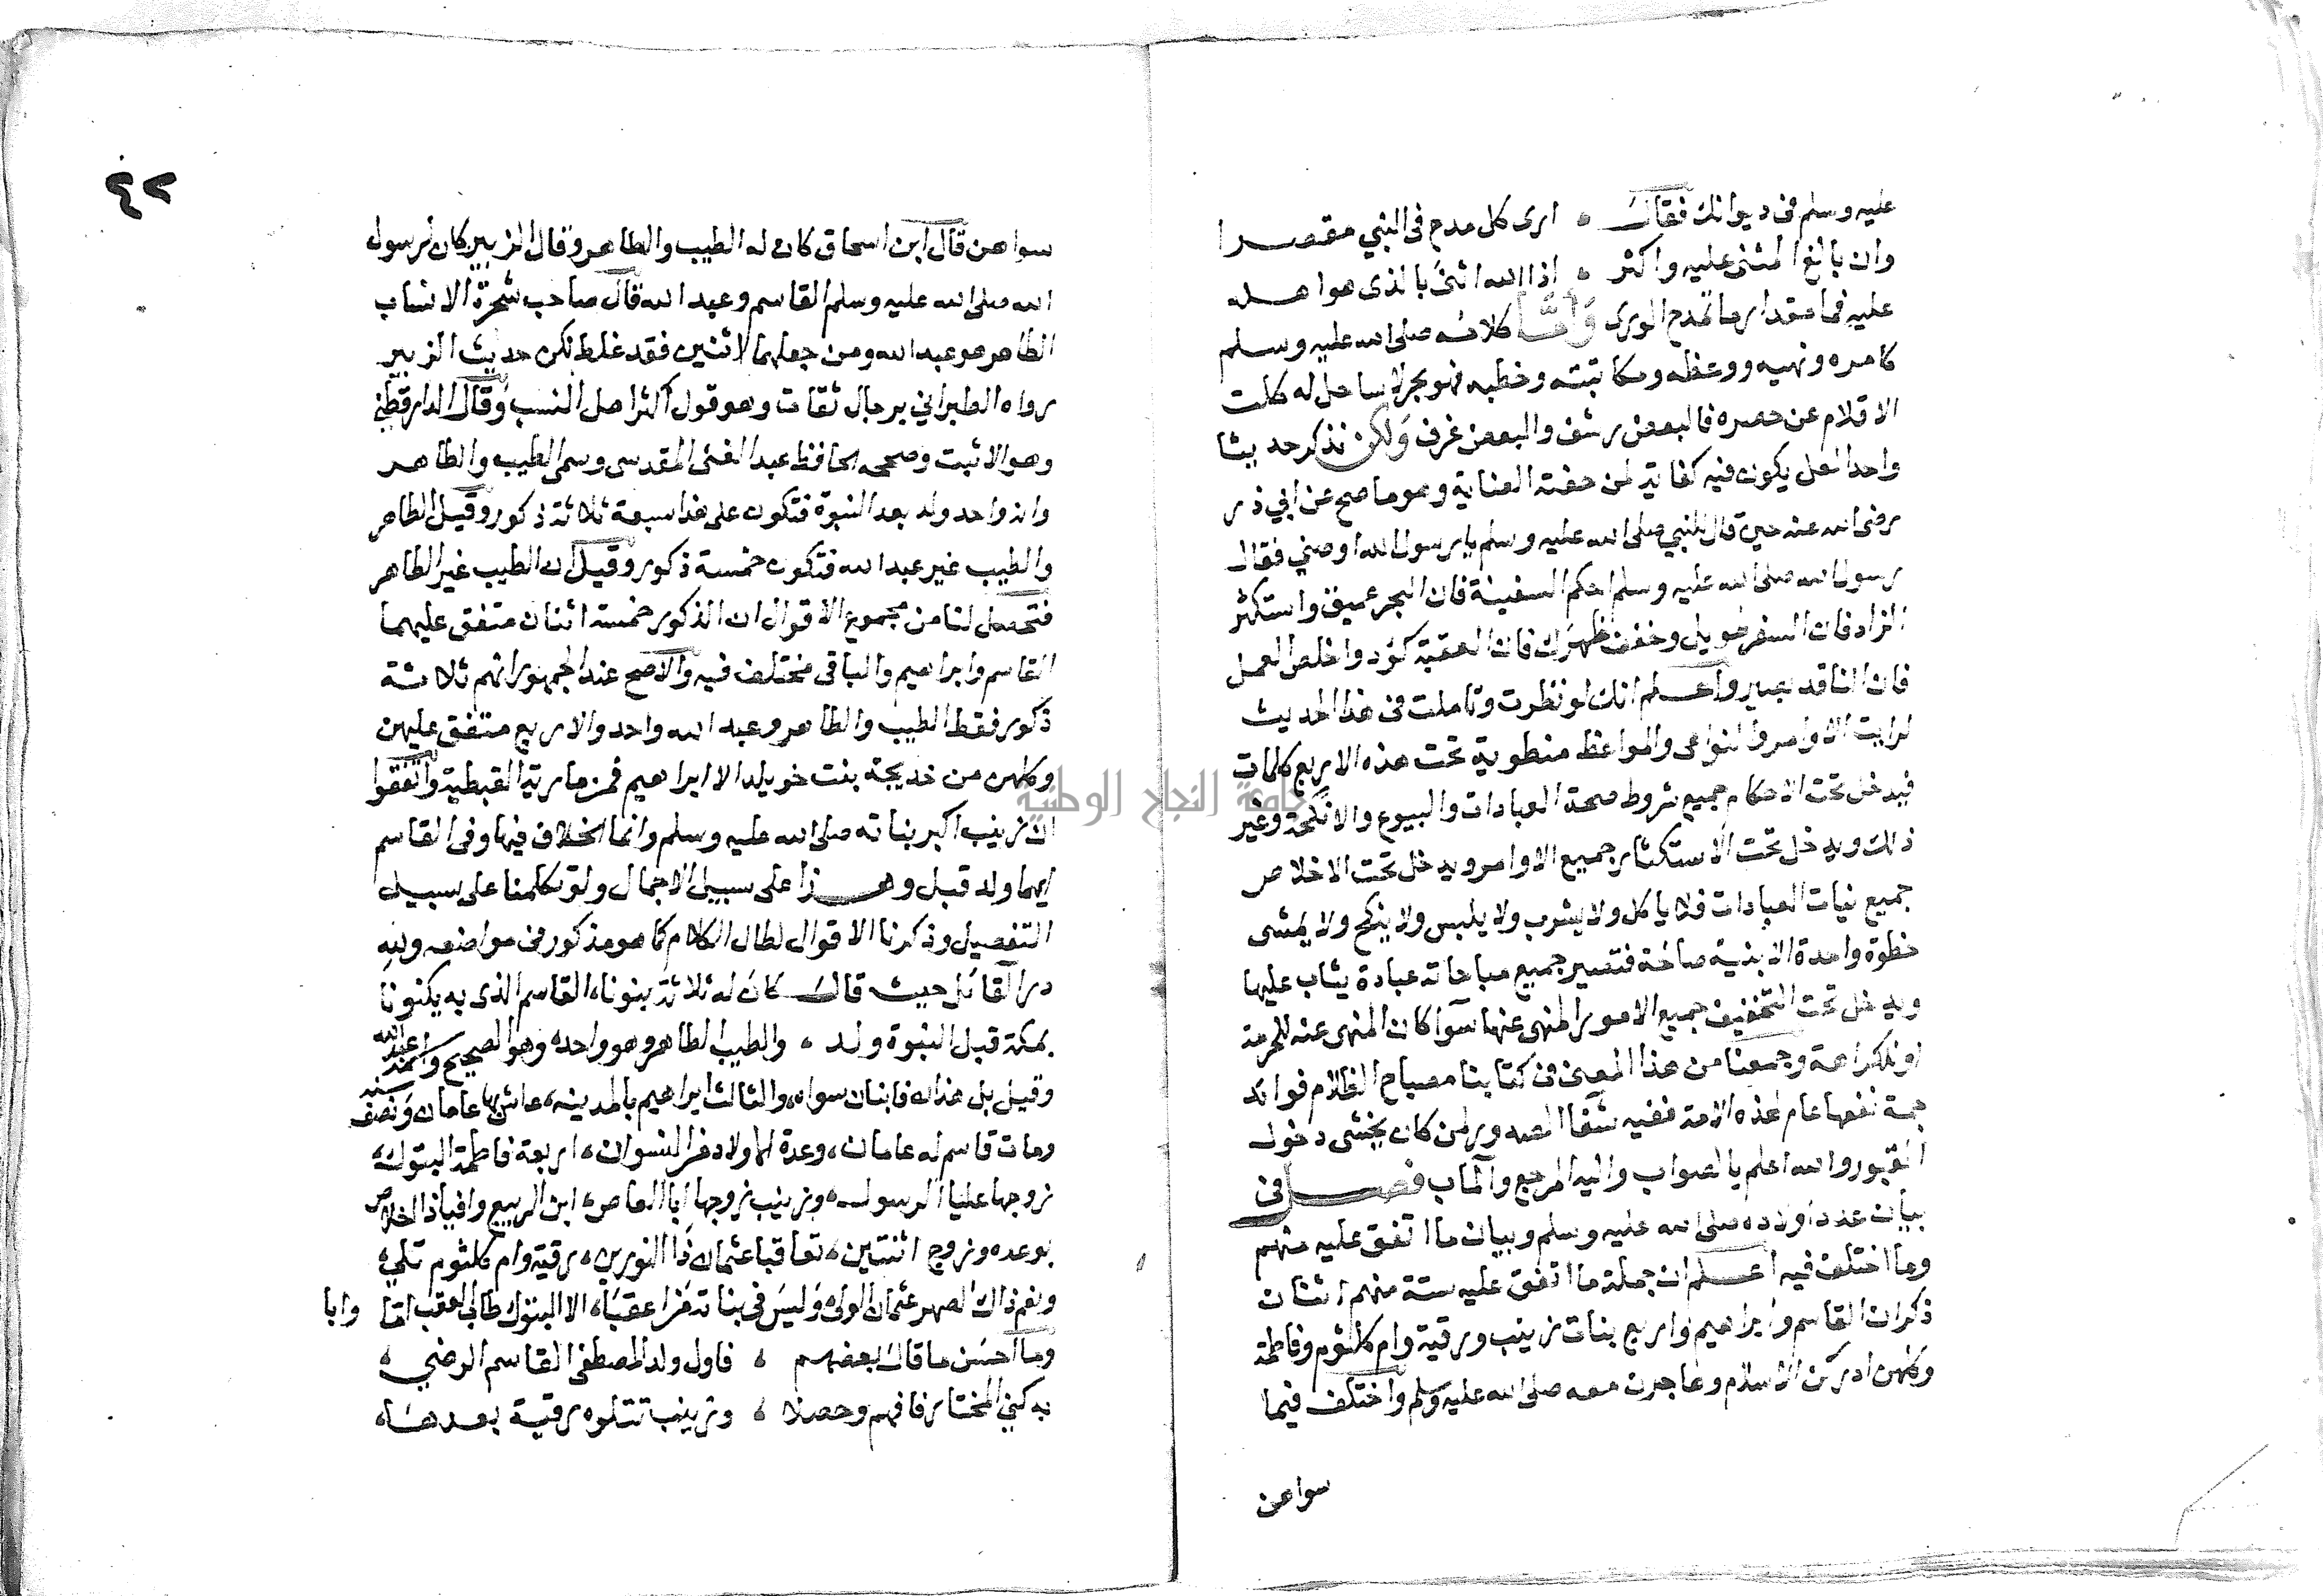 عليه وسلم فى ديوانك فقال ؞ ارى كل مدح فى النبي مقصرا
وان بالغ المثنى عليه واكثر ؞ اذا الله اثنى بالذى هو اهله
عليه فما مقدار ما تمدح الورى وأما كلامه صلى الله عليه وسلم
كامره ونهيه ووعظه ومكاتبته وخطبه فهو بحر لا ساحل له كلت
الاقلام عن حصره فالبعض رشف والبعض غرف ولكن نذكر حديثا
واحدا لعل يكون فيه كفاية لمن حفته العناية وهو ما صح عن ابي ذر
رضى الله عنه حين قال للنبي صلى الله عليه وسلم يا رسول الله اوصني فقال
رسول الله صلى الله عليه وسلم احكم السفينة فان البحر عميق واستكثر
الزاد فان السفر طويل وخفف ظهرك فان العقبة كؤد واخلص العمل
فان الناقد بصير واعلم انك لو نظرت وتاملت فى هذا الحديث
لرايت الاوامر والنواهى والمواعظ منطوية تحت هذه الاربع كلمات
فيدخل تحت الاحكام جميع شروط صحة العبادات والبيوع والانكحة وغير
ذلك ويدخل تحت الاستكثار جميع الاوامر ويدخل تحت الاخلاص
جميع نيات العبادات فلا ياكل ولا يشرب ولا يلبس ولا ينكح ولا يمشى
خطوة واحدة الا بنية صالحة فتصير جميع مباحاته عبادة يثاب عليها
ويدخل تحت التخفيف جميع الامور المنهى عنها سوآ كان المنهى عنه للحرمة
او للكراهة وجمعنا من هذا المعنى فى كتابنا مصباح الظلام فوائد
جمة نفعها عام لهذه الامة ففيه شفا الصدور لمن كان يخشى دخول
القبور والله اعلم بالصواب واليه المرجع والمآب فصل فى
بيان عدد اولاده صلى الله عليه وسلم وبيان ما اتفق عليه منهم
وما اختلف فيه اعلم ان جملة ما اتفق عليه ستة منهم اثنان
ذكران القاسم وابراهيم واربع بنات زينب ورقية وام كلثوم وفاطمة
وكلهن ادركن الاسلام وهاجرن معه صلى الله عليه وسلم واختلف فيما
سواهن
٤٢
سواهن قال ابن اسحاق كان له الطيب والطاهر وقال الزبير كان لرسول
الله صلى الله عليه وسلم القاسم وعبد الله قال صاحب شجرة الانساب
الطاهر هو عبد الله ومن جعلهما لاثنين فقد غلط لكن حديث الزبير
رواه الطبراني برجال ثقات وهو قول اكثر اهل النسب وقال الدارقطني
وهو الاثبت وصححه الحافظ عبد الغنى المقدسى وسمى الطيب والطاهر
وانه واحد ولد بعد النبوة فتكون على هذا سبعة ثلاثة ذكور وقيل الطاهر
والطيب غير عبد الله فتكون خمسة ذكور وقيل ان الطيب غير الطاهر
فتحصل لنا من مجموع الاقوال ان الذكور خمسة اثنان متفق عليهما
القاسم وابراهيم والباقى مختلف فيه والاصح عند الجمهور انهم ثلاثة
ذكور فقط الطيب والطاهر وعبد الله واحد والاربع متفق عليهن
وكلهن من خديجة بنت خويلد الا ابراهيم فمن مارية القبطية واتفقوا
ان زينب اكبر بناته صلى الله عليه وسلم وانما الخلاف فيها وفى القاسم
ايهما ولد قبل وهذا على سبيل الاجمال ولو تكلمنا على سبيل
التفصيل وذكرنا الاقوال لطال الكلام كما هو مذكور فى مواضعه ولله
در القائل حيث قال كان له ثلاثة بنونا، القاسم الذى به يكنونا
بمكة قبل النبوة ولد ، والطيب الطاهر وهو واحد، وهو الصحيح واسمه عبد الله
وقيل بل هذان فابنان سواه، والثالث ابراهيم بالمدينه، عاش بها عامان ونصف سنه
ومات قاسم له عامان، وعدة الاولاد من النسوان، اربعة فاطمة البتول،
زوجها عليا الرسول، وزينب زوجها ابا العاص، ابن الربيع وافيا ذا الخلاص
بوعده وزوج اثنتين، تعاقبا عثمان ذا النورين، رقية وام كلثوم تلي،
ونعم ذاك الصهر عثمان الولي، وليس فى بناته من اعقبا، الا البتول طاب العقب اما وابا
وما احسن ما قال بعضهم ، فاول ولد المصطفى القاسم الرضي ،
به كني المختار فافهم وحصلا ، وزينب تتلوه رقية بعدها،
جامعة النجاح الوطنية